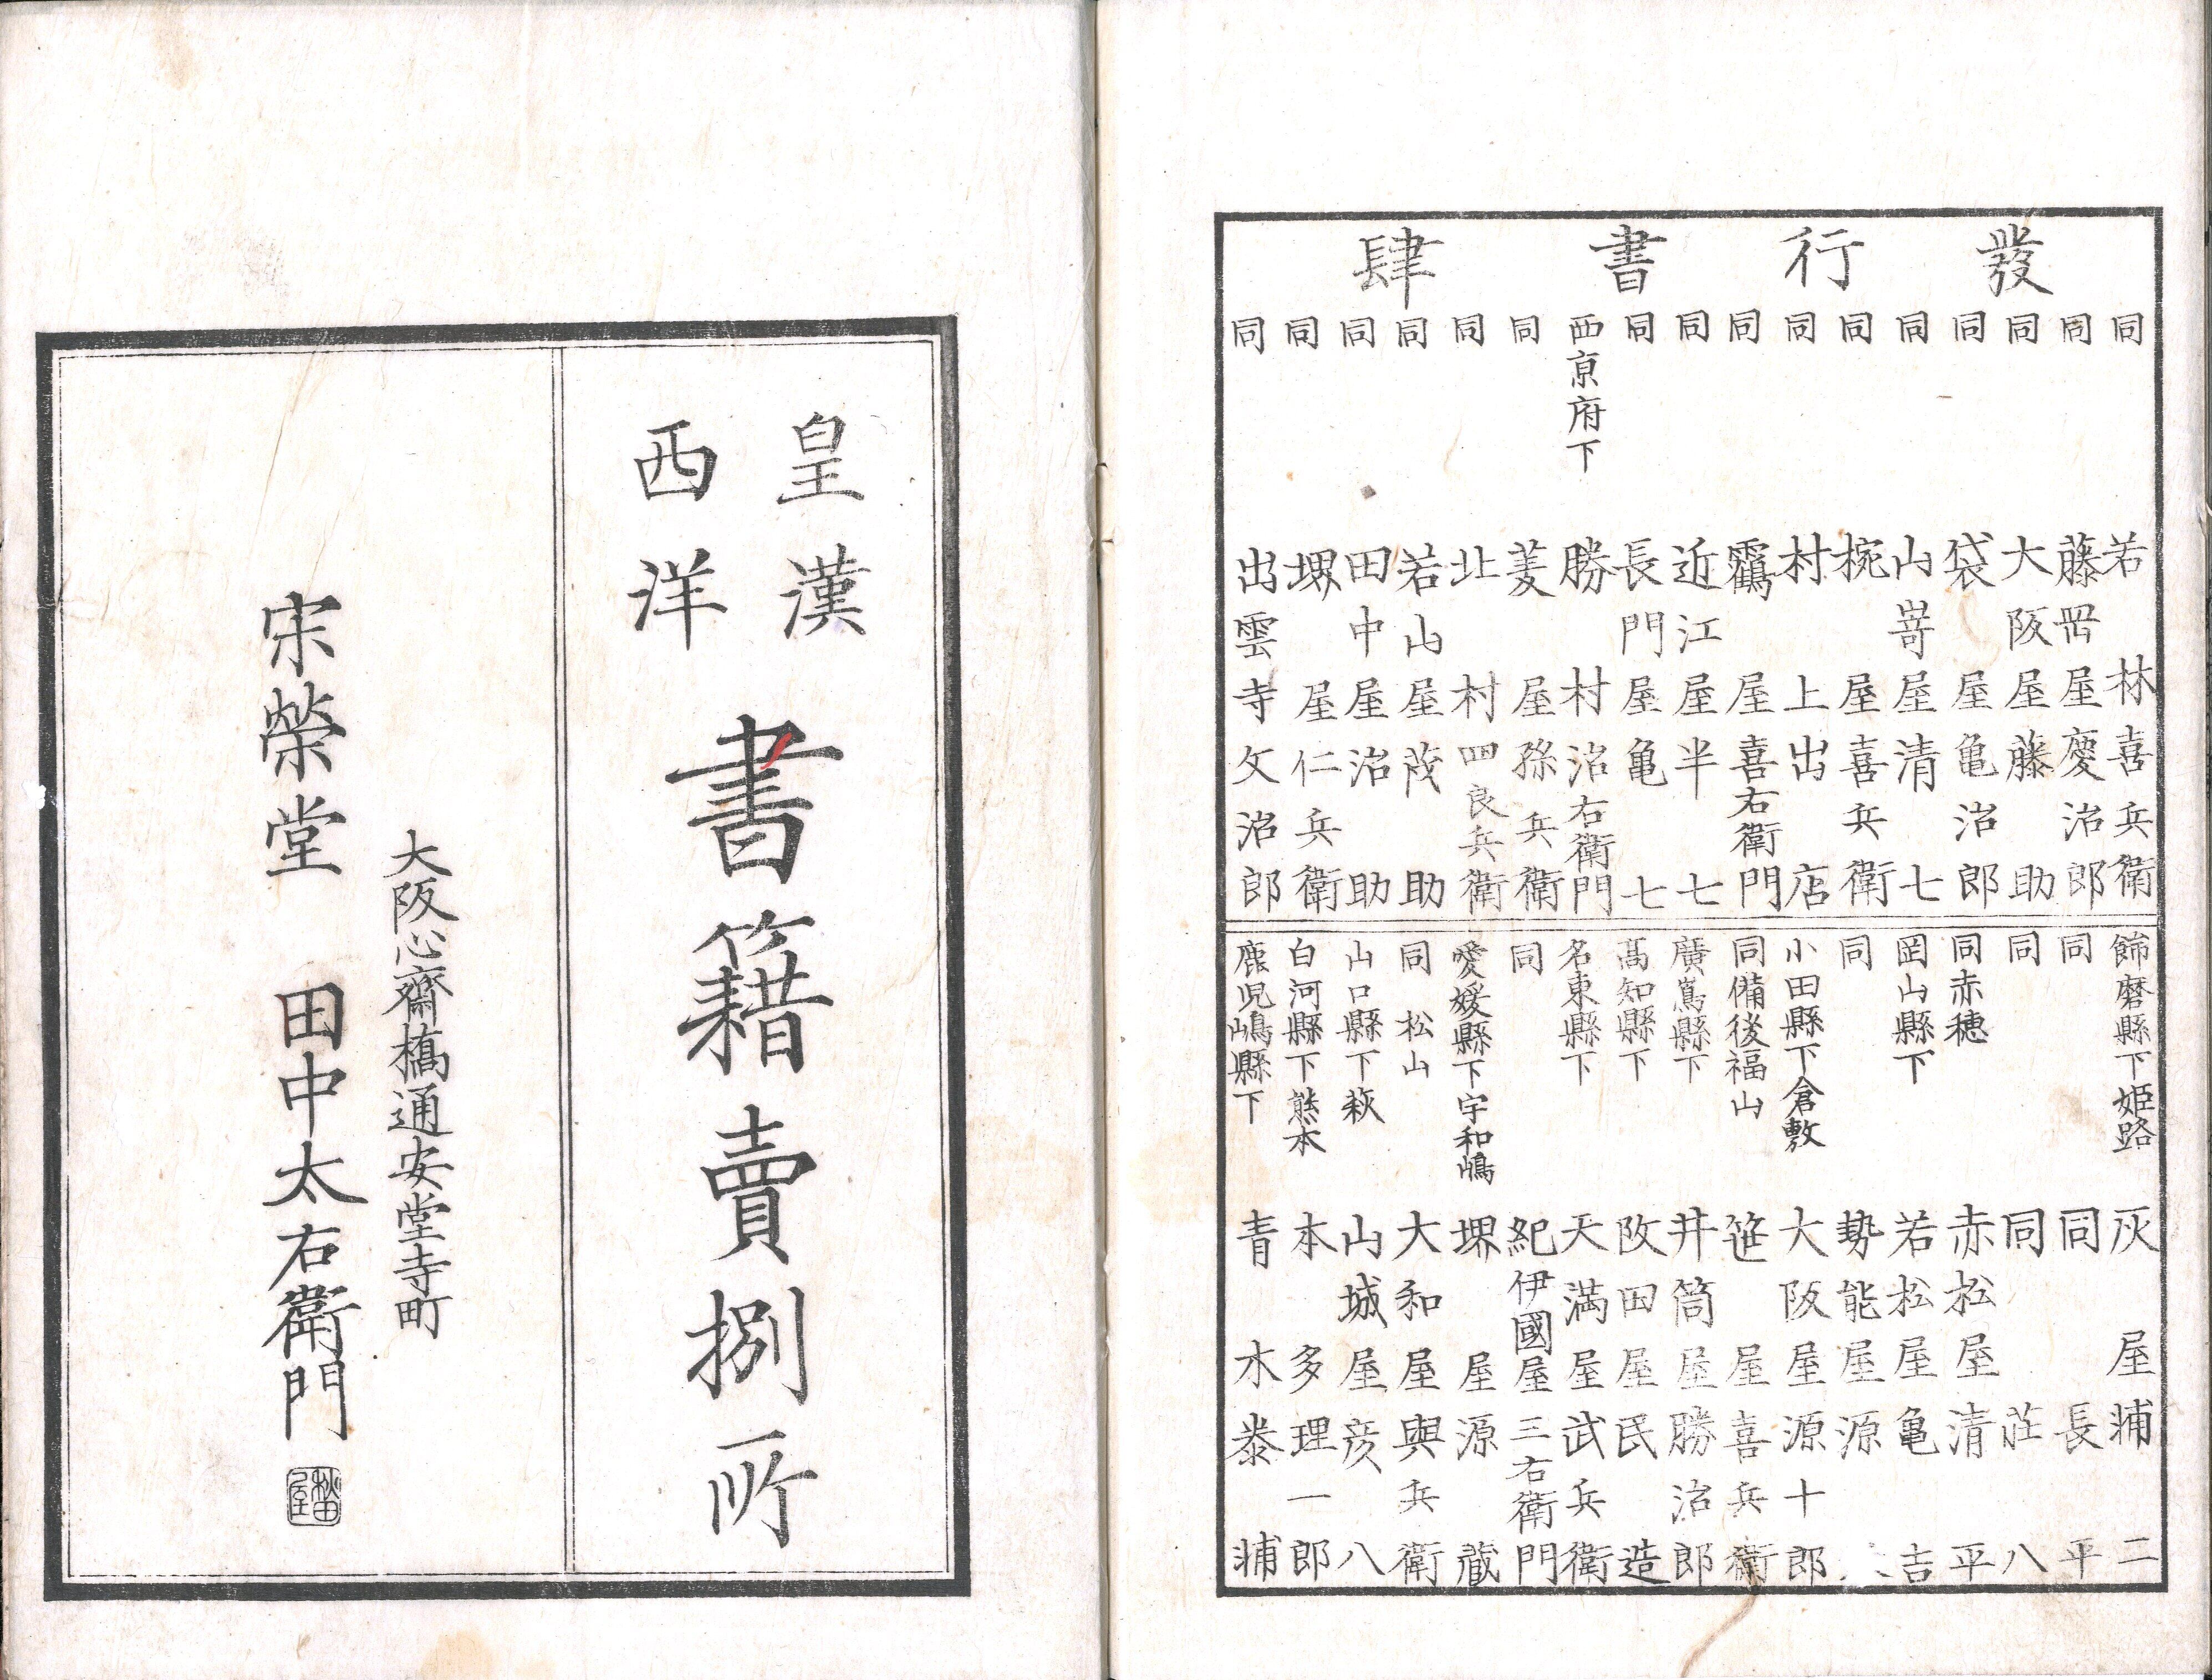 發行書肆
同 若林喜兵衛
同 藤岡屋慶治郎
同 大阪屋藤助
同 袋屋亀治郎
同 山嵜屋清七
同 椀屋喜兵衛
同 村上出店
同 靏屋喜右衛門
同 近江屋半七
同 長門屋亀七
西京府下 勝村治右衛門
同 菱屋孫兵衛
同 北村四良兵衛
同 若山屋茂助
同 田中屋治助
同 堺屋仁兵衛
同 出雲寺文治郎
飾磨縣下姫路 灰屋輔二
同 同長平
同 同莊八
同赤穂 赤松屋清平
岡山縣下 若松屋亀吉
同 勢能屋源
小田縣下倉敷 大阪屋源十郎
同備後福山 笹屋喜兵衛
廣嶌縣下 井筒屋勝治郎
髙知縣下 改田屋民造
名東縣下 天満屋武兵衛
同 紀伊國屋三右衛門
愛媛縣下宇和嶋 堺屋源蔵
同松山 大和屋與兵衛
山口縣下萩 山城屋彦八
白河縣下熊本 本多理一郎
鹿児嶋縣下 青木泰輔
皇漢
西洋
書籍賣捌所
大阪心齋橋通安堂寺町
宋榮堂 田中太右衛門